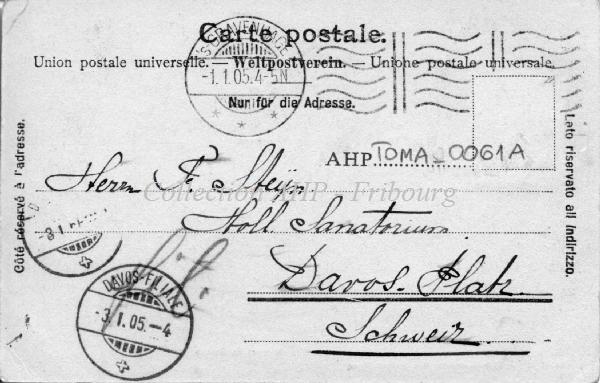 Carte postale.
Union postale universelle. — Weltpostverein. — Unione postale universale.
'S GRAVENHAGE
-1.1.05.4-5N
Nur für die Adresse.
Côté réservé à l'adresse.
Lato riservato all indirizzo.
AHP TOMA_0061A
Herrn F. Steijn
Collection AHP - Fribourg
Holl. Sanatorium
Davos-Platz
Schweiz
DAVOS-FILIALE
-3.I.05.-4